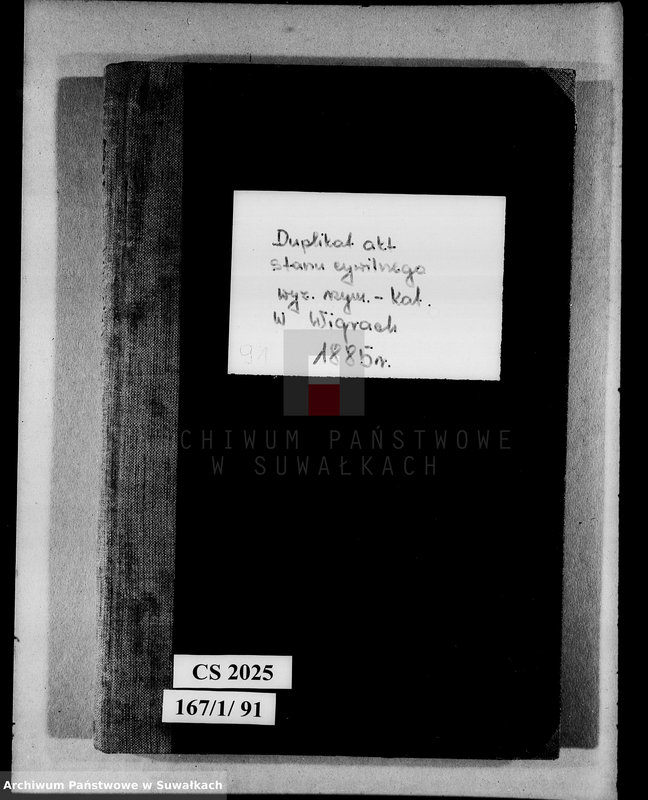 Duplikat akt
stanu cywilnego
wyz. rzym. - kat.
W Wigrach
91
1885 r.
ARCHIWUM PAŃSTWOWE
W SUWAŁKACH
CS 2025
167/1/ 91
Archiwum Państwowe w Suwałkach